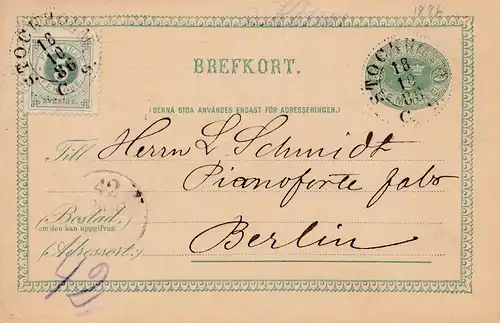 1886
STOCKHOLM
18
12
86
C
STOCKHOLM
18
12
86
C
BREFKORT.
(DENNA SIDA ANVÄNDES ENDAST FÖR ADRESSERINGEN.)
Till Herrn L Schmidt
Pianoforte fabr
(Bostad,
om den kan uppgifvas)
Berlin
(Adressort:)
42